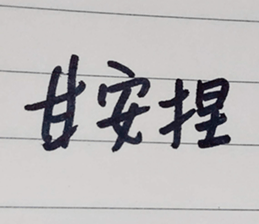 甘安捏